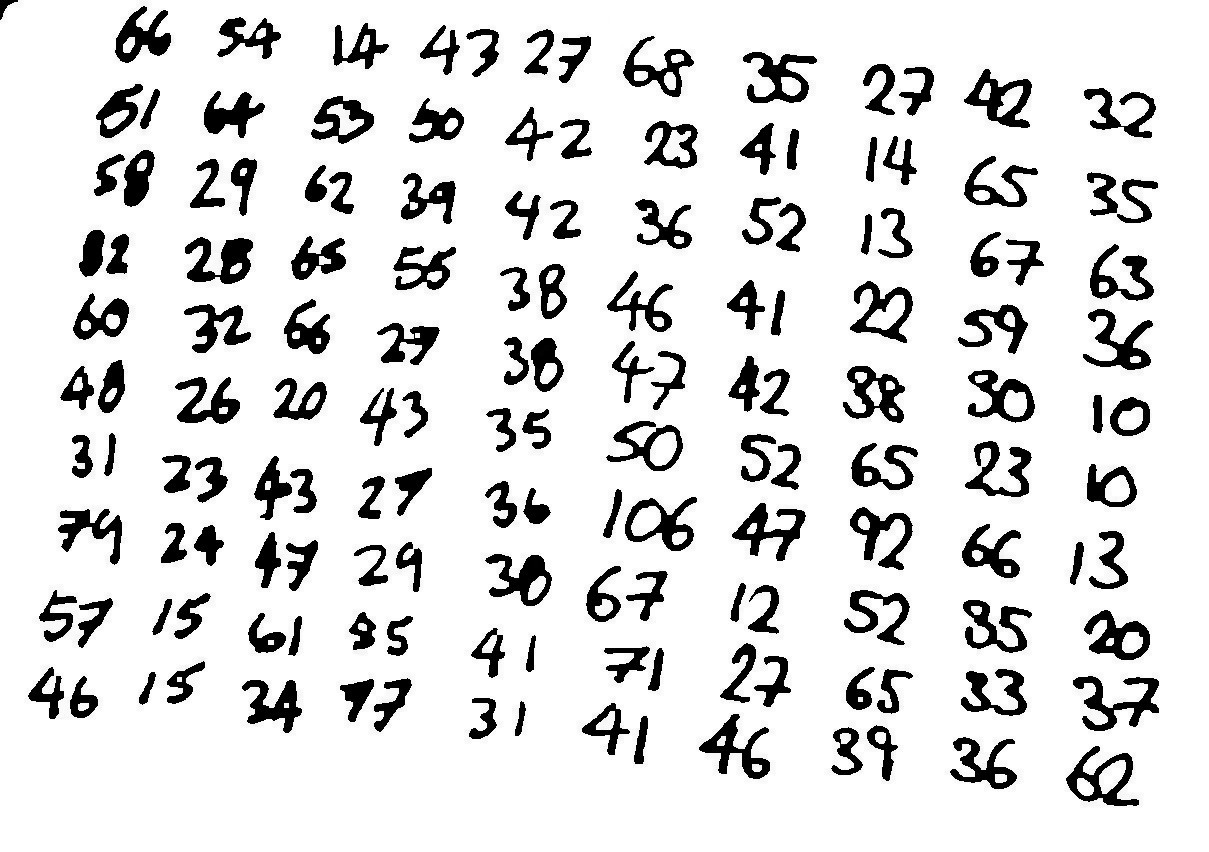 66 54 14 43 27 68 35 27 42 32
51 64 53 50 42 23 41 14 65 35
58 29 62 39 42 36 52 13 67 63
82 28 65 55 38 46 41 22 59 36
60 32 66 27 38 47 42 38 30 10
48 26 20 43 35 50 52 65 23 10
31 23 43 27 36 106 47 92 66 13
79 24 47 29 38 67 12 52 35 20
57 15 61 35 41 71 27 65 33 37
46 15 34 77 31 41 46 39 36 62